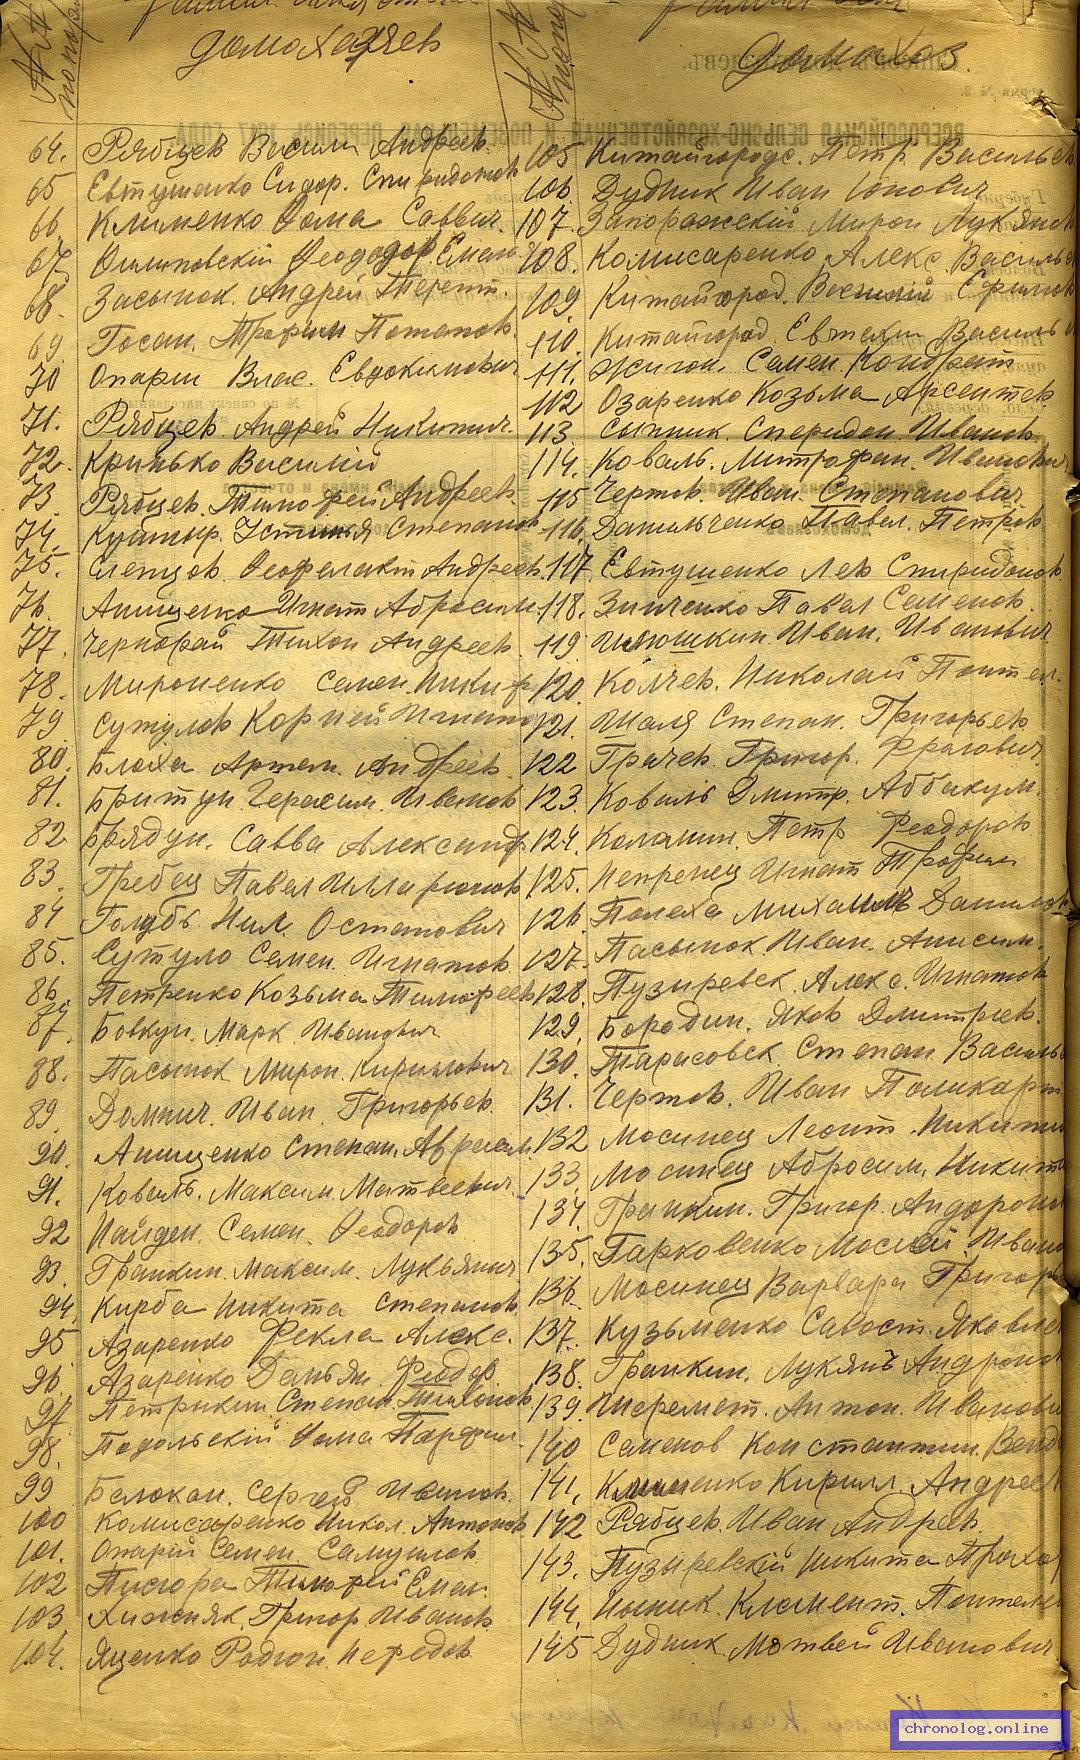 домохозяев
домохоз.
64. Рябцев Васили Андреев.
65 Евтушенко Сидор. Спиридонов
66 Клименко Фома Саввич.
67. Филиповскій Феододор Емел
68. Засыпок. Андрей Терент.
69 Госан. Трофим Потапов.
70 Опарш Влас. Евдокимович
71. Рябцев. Андрей Никитич.
72. Кринько Василій
73. Рябцев. Тимофей Андреев.
74. Куйтыр. Устинья Степанов
75. Слепцов. Феофелакт Андреев.
76. Анищенко Игнат Абросим
77. Чернобай Тихон Андреев.
78. Мироненко Семен. Никиф
79 Сутулов Корней Игнато
80. Блоха Артем. Андреев.
81. Бритун. Герасим. Иванов
82 Брядун. Савва Александ
83. Гребец Павел Илларионов
84 Голубь. Нил. Остапович
85. Сутуло Семен. Игнатов
86. Петренко Козьма Тимофеев
87. Бовкун. Марк Иванович
88. Пасынок Мирон. Кириллович
89. Домнич. Иван. Григорьев.
90. Анищенко Степан. Абросим.
91. Коваль. Максим. Матвеевич.
92 Найден. Семен. Феодоров
93. Гранкин. Максим. Лукьянич
94. Кирба Никита Степанов.
95 Азаренко Фекла Алекс.
96. Азаренко Демьян. Феодор.
97 Петрыкин Степан. Тихонов
98. Подольскій Фома Парфил
99 Белокон. Сергей Иванов.
100 Комисаренко Никол. Антонов
101. Опарій Семен. Самуилов
102 Писюра Тимофей Емел.
103 Хижняк. Григор Иванов.
104. Яценко Родион. Нефедов
105 Китайгородс. Петр Васильев
106. Дудник Иван Іонович
107. Запоражскій Мирон Лукянов
108. Комисаренко Алекс. Василье
109. Китайгород. Василій Ефимов
110. Китайгород Евтихи Василь
111. Жигон. Семен. Кондрат
112 Озаренко Козьма Арсентев
113. Сытник. Спиридон. Иванов
114. Коваль. Митрофан. Иванович
115 Чертов. Иван. Степанович
116. Данильченко Павел. Петров
117. Евтушенко Лев Спиридонов
118. Зинченко Павел Семенов.
119. Илюшкин Иван. Иванович
120. Колчев. Николай Понтел.
121. Шаля Степан. Григорьев
122 Грачев. Григор. Фролович.
123. Коваль Дмитр. Аббакум.
124. Коломин. Петр Феодоров
125. Непренец Игнат Трофим
126. Полеха Михаилъ Данилов
127. Пасынок Иван. Анисим.
128. Пузыревск. Алекс. Игнатов
129. Бородин. Яков Дмитриев.
130. Тарасовск Степан. Василь
131. Чертов. Иван Поликарп
132 Мосинец Леонт. Никити
133. Мосинец Абросим. Никит
134. Гранкин. Григор. Андрони
135. Гарковенко Мосей. Ивано
136. Мосинец Варвара Григорь
137. Кузьменко Савост. Яковле
138. Гранкин. Лукянъ Андроно
139. Шеремет. Антон. Иванови
140 Семенов Константин. Венд
141. Клименко Кирилл. Андрее
142 Рябцев. Иван Андреев.
143. Пузыревскій Никита Прохо
144. Ныник. Климент. Понтеле
145 Дудник. Матвей Иванович
chronolog.online